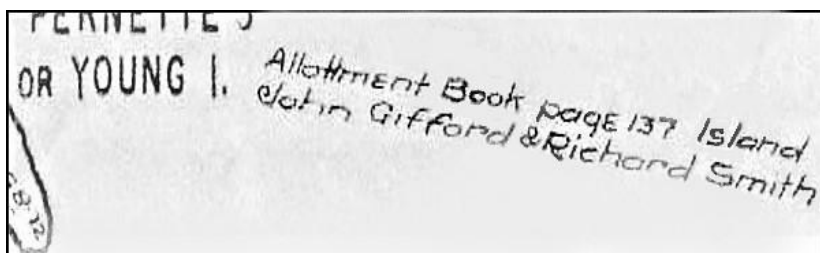 PERNETTE'S
OR YOUNG I.
Allottment Book page 137 Island
John Gifford & Richard Smith